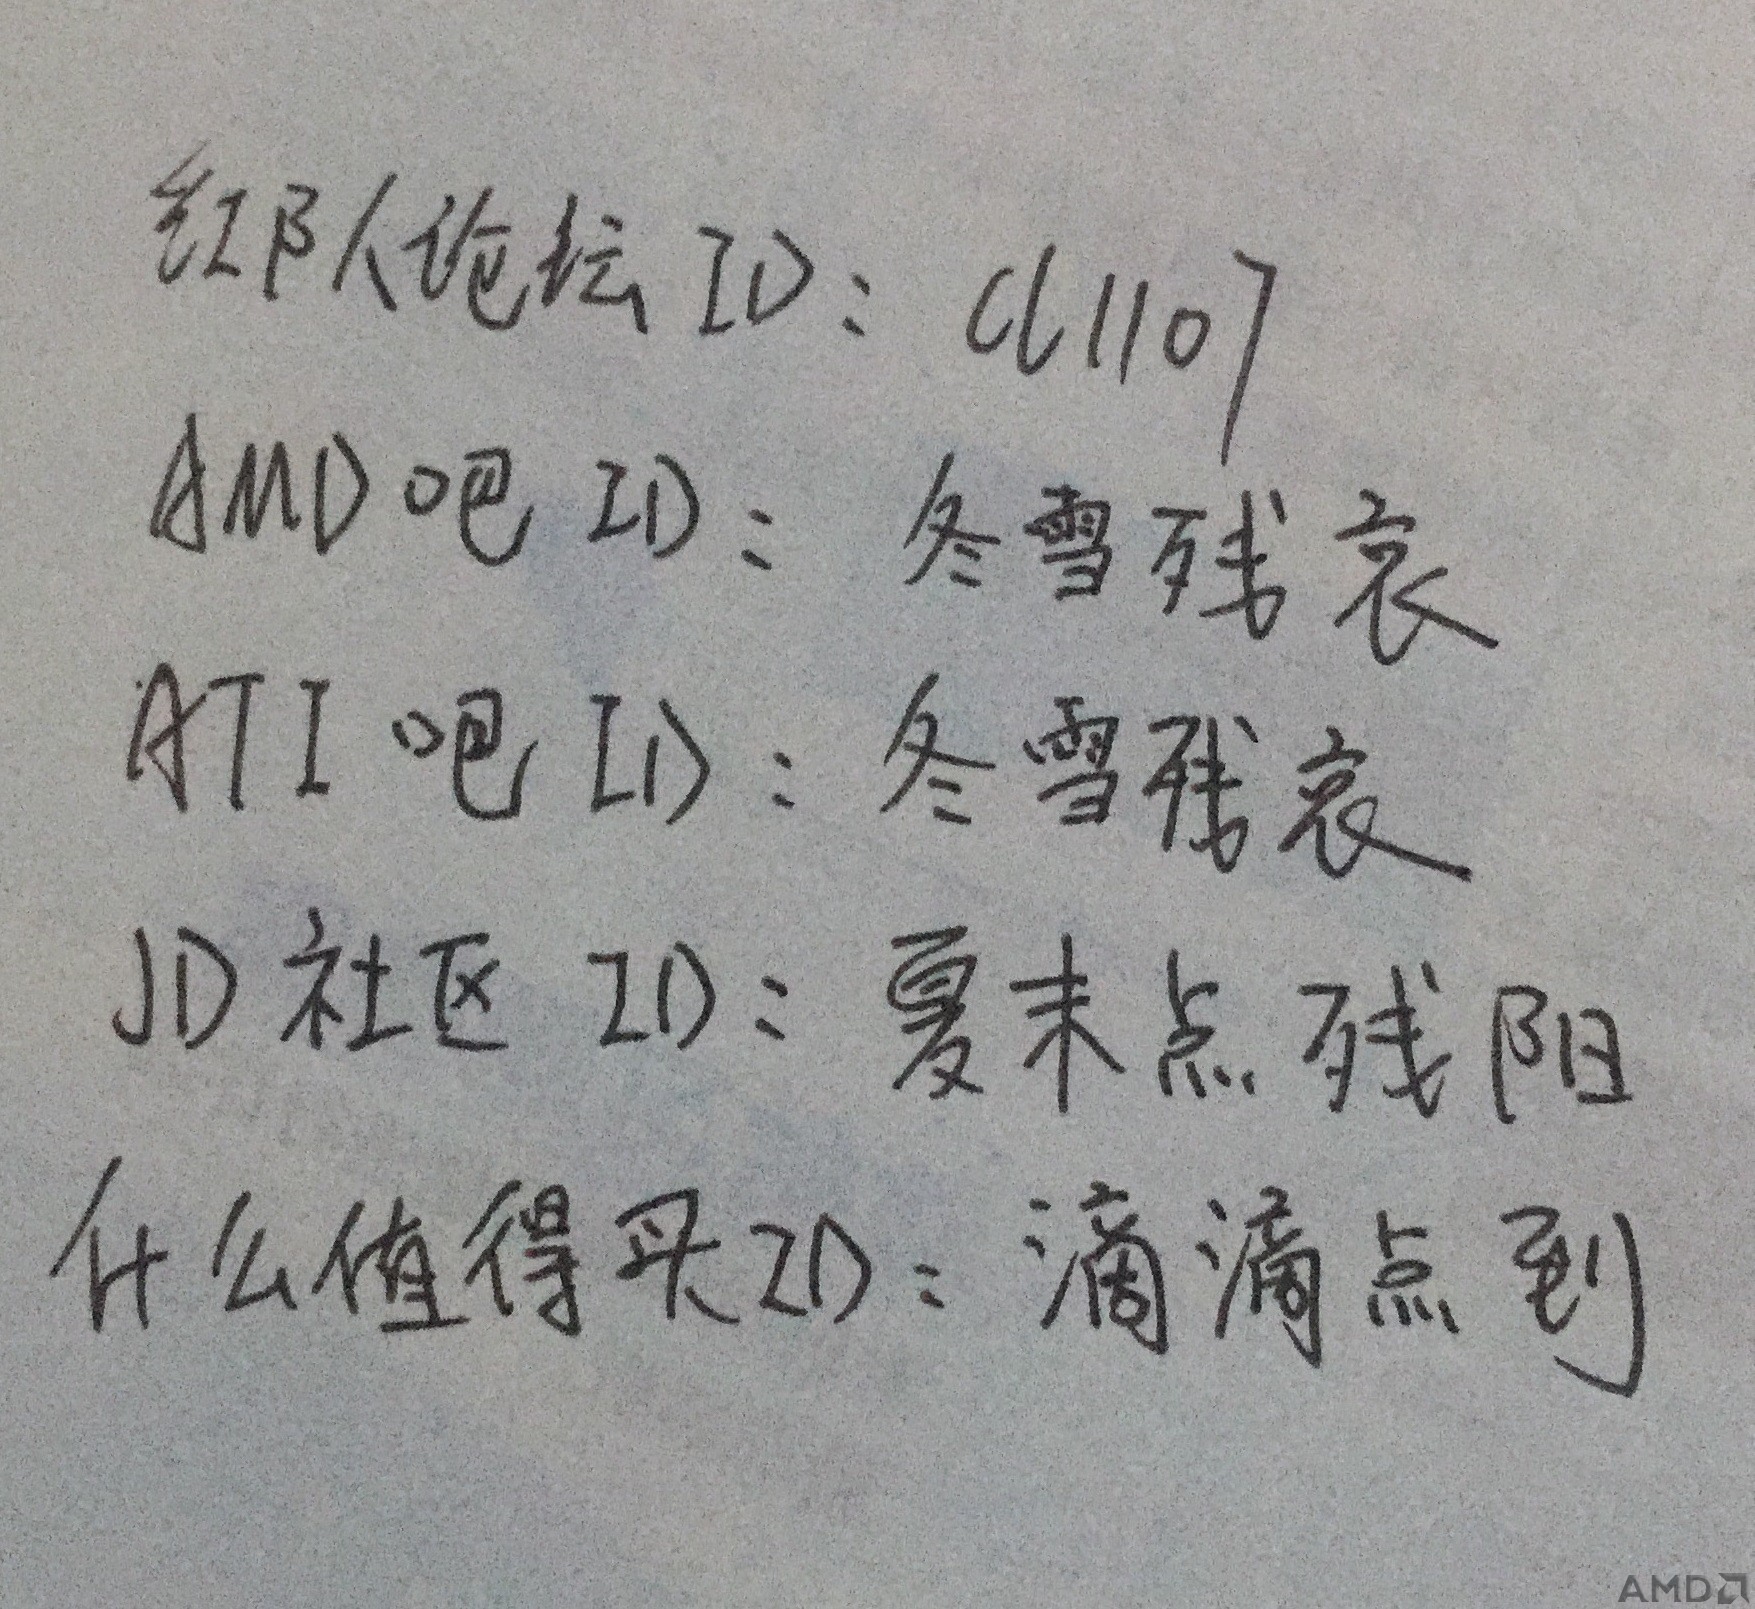 红队论坛ID：cl1107
AMD吧ID：冬雪残哀
ATI吧ID：冬雪残哀
JD社区ID：夏末点残阳
什么值得买ID：滴滴点到
AMD